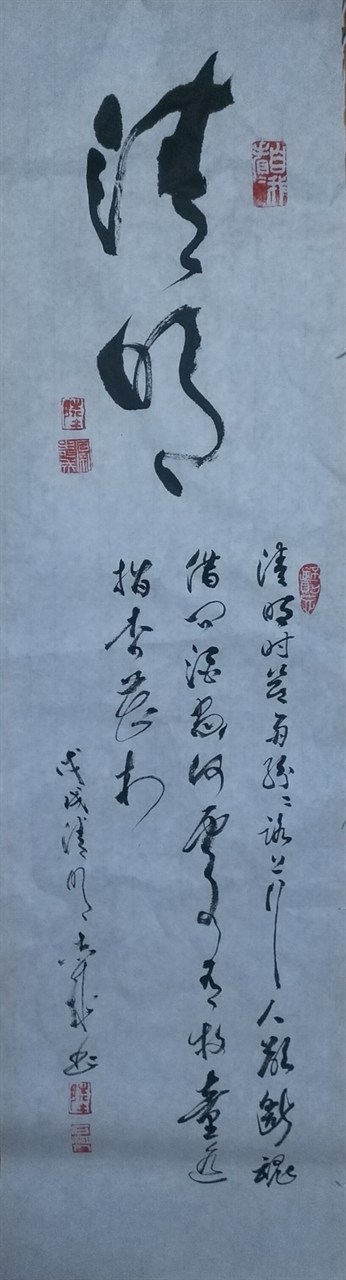 清明
清明时节雨纷纷路上行人欲断魂
借问酒家何处有牧童遥
指杏花村
戊戌清明 书